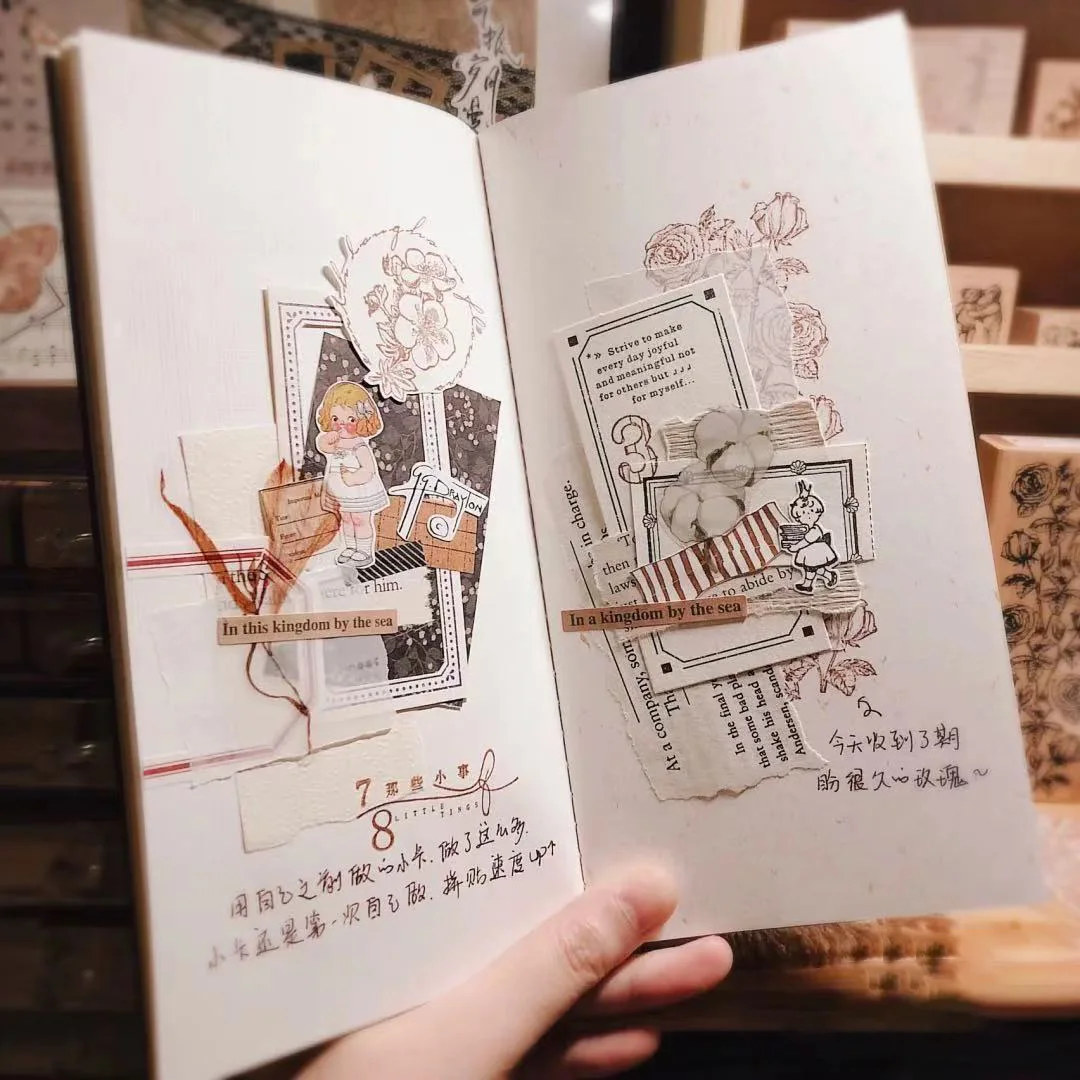 J.G.DRAYTON
here for him.
In this kingdom by the sea
7 那些小事
8 LITTLE TINGS
用自己之前做的小卡.做了这么多.
小卡还是第一次自己做.拼贴速度up↑
*» Strive to make
every day joyful
and meaningful not
for others but ♪♪♪
for myself...
3
in charge.
then
laws
to abide by
In a kingdom by the sea
At a company, som
Th
In the final y
that some bad pl
shake his head, a
Andersen, scand
今天收到了期
盼很久的玫瑰~